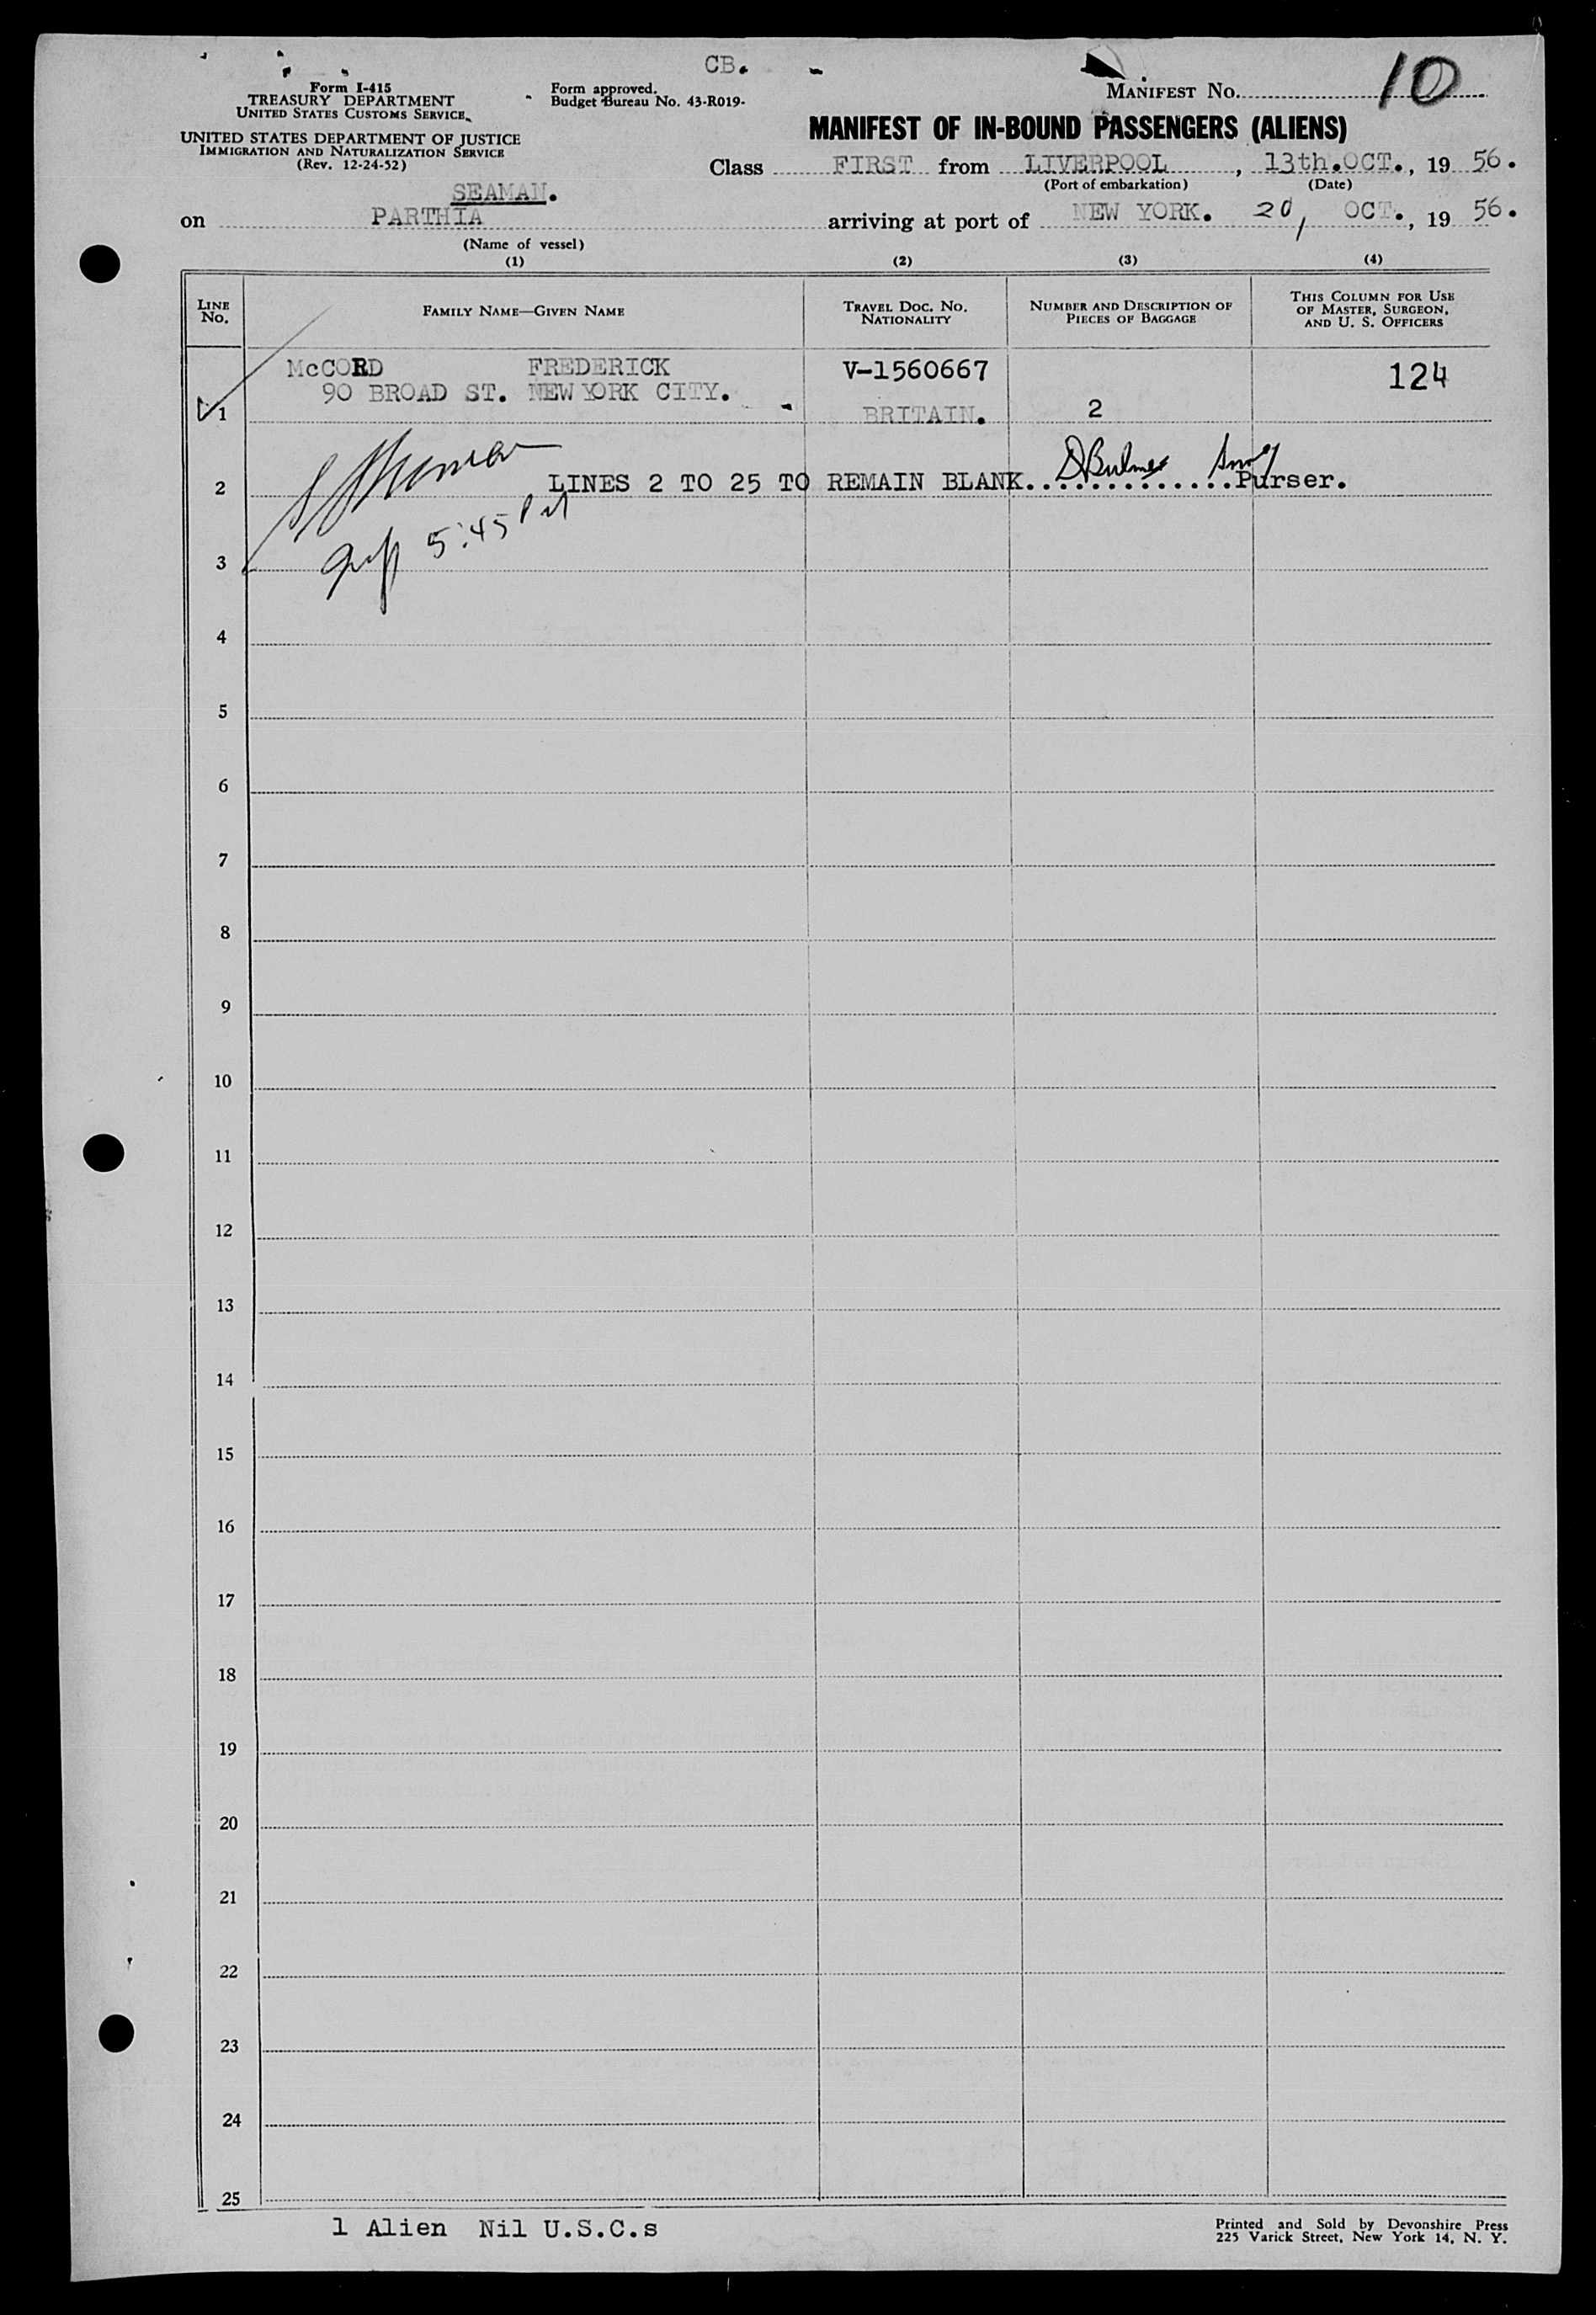 CB.
Form I-415
TREASURY DEPARTMENT
UNITED STATES CUSTOMS SERVICE
UNITED STATES DEPARTMENT OF JUSTICE
IMMIGRATION AND NATURALIZATION SERVICE
(Rev. 12-24-52)
Form approved.
Budget Bureau No. 43-R019-
MANIFEST NO. 10
MANIFEST OF IN-BOUND PASSENGERS (ALIENS)
Class FIRST from LIVERPOOL, 13th.OCT., 19 56.
(Port of embarkation) (Date)
SEAMAN.
on PARTHIA arriving at port of NEW YORK. 20, OCT., 19 56.
(Name of vessel)
(1) (2) (3) (4)
LINE NO.
FAMILY NAME—GIVEN NAME
TRAVEL DOC. NO.
NATIONALITY
NUMBER AND DESCRIPTION OF
PIECES OF BAGGAGE
THIS COLUMN FOR USE
OF MASTER, SURGEON,
AND U. S. OFFICERS
McCORD FREDERICK V-1560667 124
90 BROAD ST. NEW YORK CITY.
1 BRITAIN. 2
2 LINES 2 TO 25 TO REMAIN BLANK.............Purser.
5:45 PM
3
4
5
6
7
8
9
10
11
12
13
14
15
16
17
18
19
20
21
22
23
24
25
1 Alien Nil U.S.C.s
Printed and Sold by Devonshire Press
225 Varick Street, New York 14, N. Y.